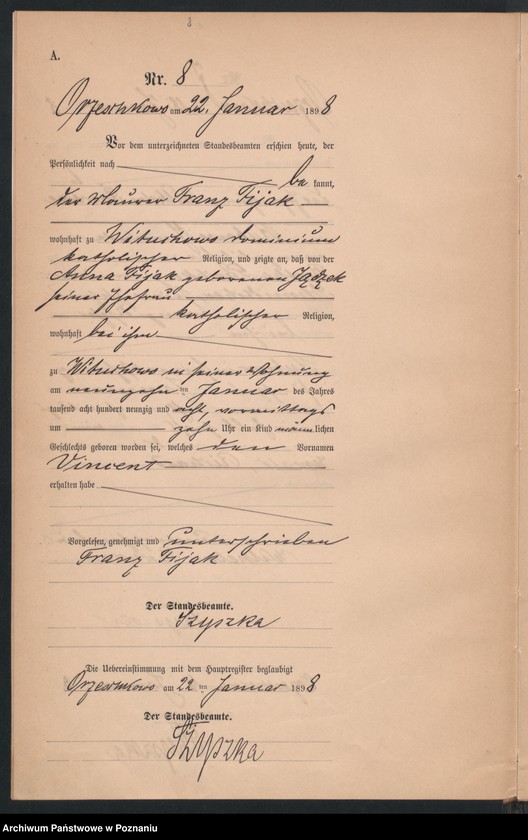 8
A.
Nr. 8
Orzeschkowo am 22. Januar 1898
Vor dem unterzeichneten Standesbeamten erschien heute, der
Persönlichkeit nach
bekannt,
der Maurer Franz Fijak
wohnhaft zu Wituchowo Dominium
katholischer Religion, und zeigte an, daß von der
Anna Fijak geborenen Jądzek
seiner Ehefrau
katholischer Religion,
wohnhaft bei ihm
zu Wituchowo in seiner Wohnung
am neunzehn ten Januar des Jahres
tausend acht hundert neunzig und acht, vormittags
um zehn Uhr ein Kind männlichen
Geschlechts geboren worden sei, welches den Vornamen
Vincent
erhalten habe
Vorgelesen, genehmigt und unterschrieben
Franz Fijak
Der Standesbeamte.
Szyszka
Die Uebereinstimmung mit dem Hauptregister beglaubigt
Orzeschkowo am 22 ten Januar 1898
Der Standesbeamte.
Szyszka
Archiwum Państwowe w Poznaniu